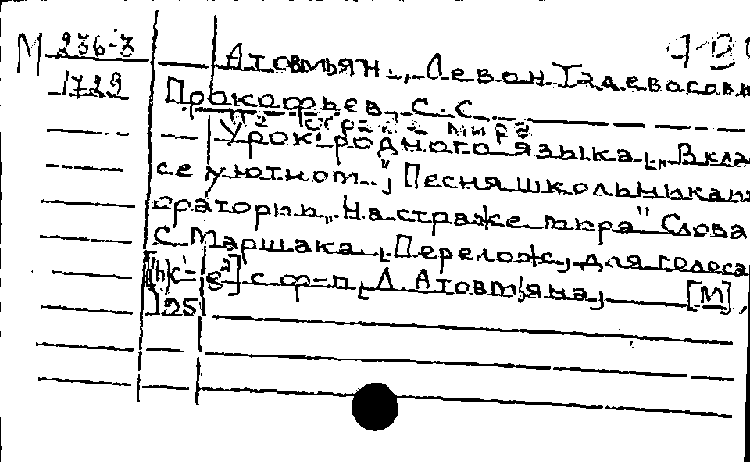 М 236-3
Атовмьян, Левон Тадевосови
1729
Прокофьев, С.С.
На страже мира
Урок родного языка, "В клас
се уютном"; Песня школьника из
оратории "На страже мира" Слова
С. Маршака, Перелож. для голоса
с ф-п. Л. Атовмьяна, [М],
195